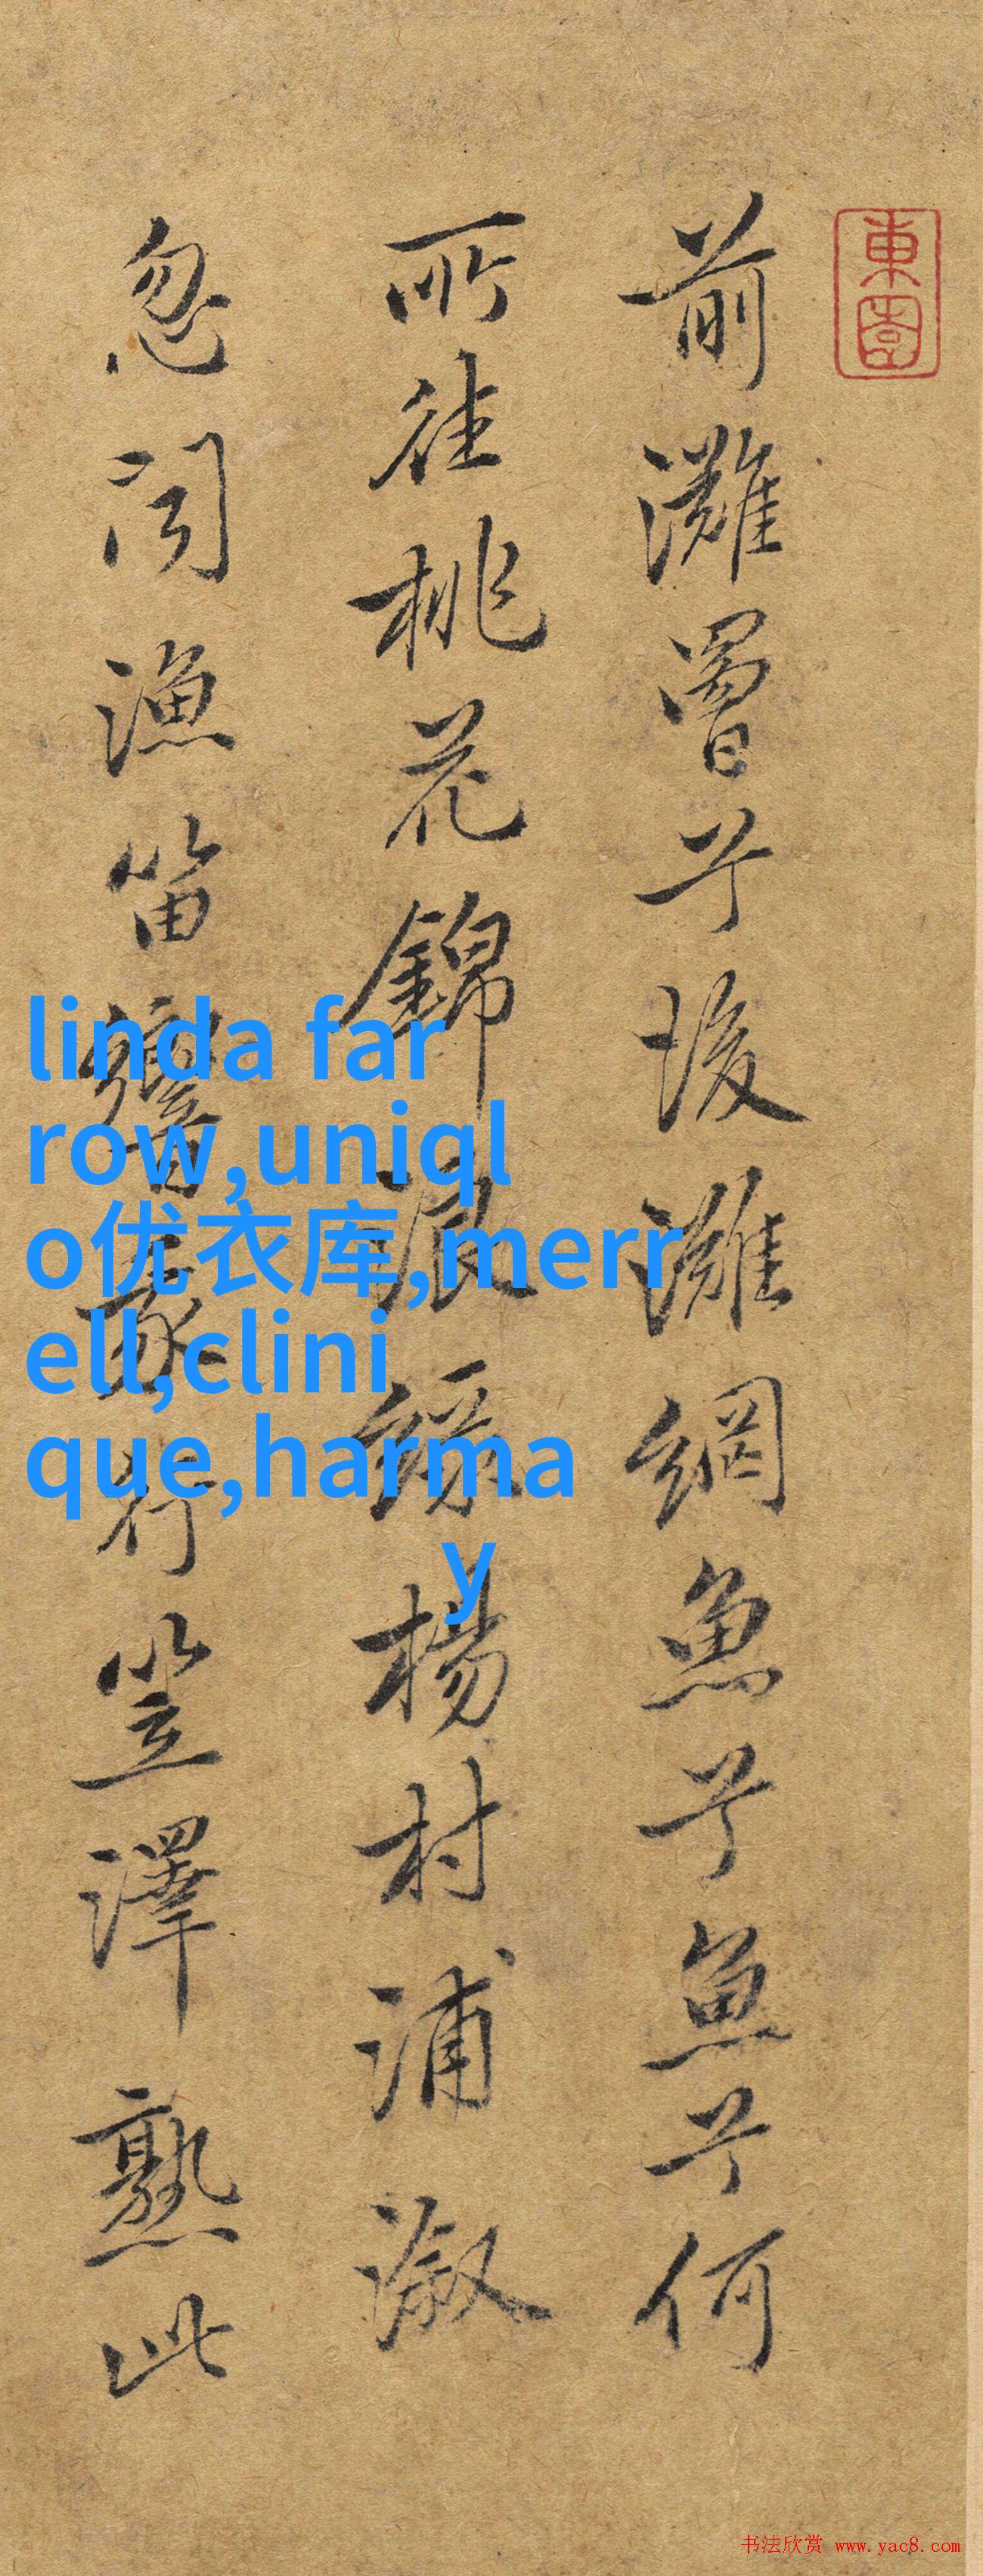 東園
前灘罾兮後灘網魚兮魚兮何
所往桃花錦浪綠楊村浦溆
忽聞漁笛響我行笠澤熟此
linda far
row,uniql
o优衣库,merr
ell,clini
que,harma
y
书法欣赏 www.yac8.com